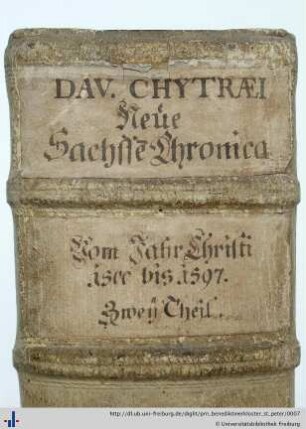 DAV. CHYTRÆI
Neüe
Sachsse Chronica
Vom Jahr Christi
1500 bis 1597.
Zweÿ Theil.
http://dl.ub.uni-freiburg.de/diglit/prn_benediktinerkloster_st_peter/0007
© Universitätsbibliothek Freiburg